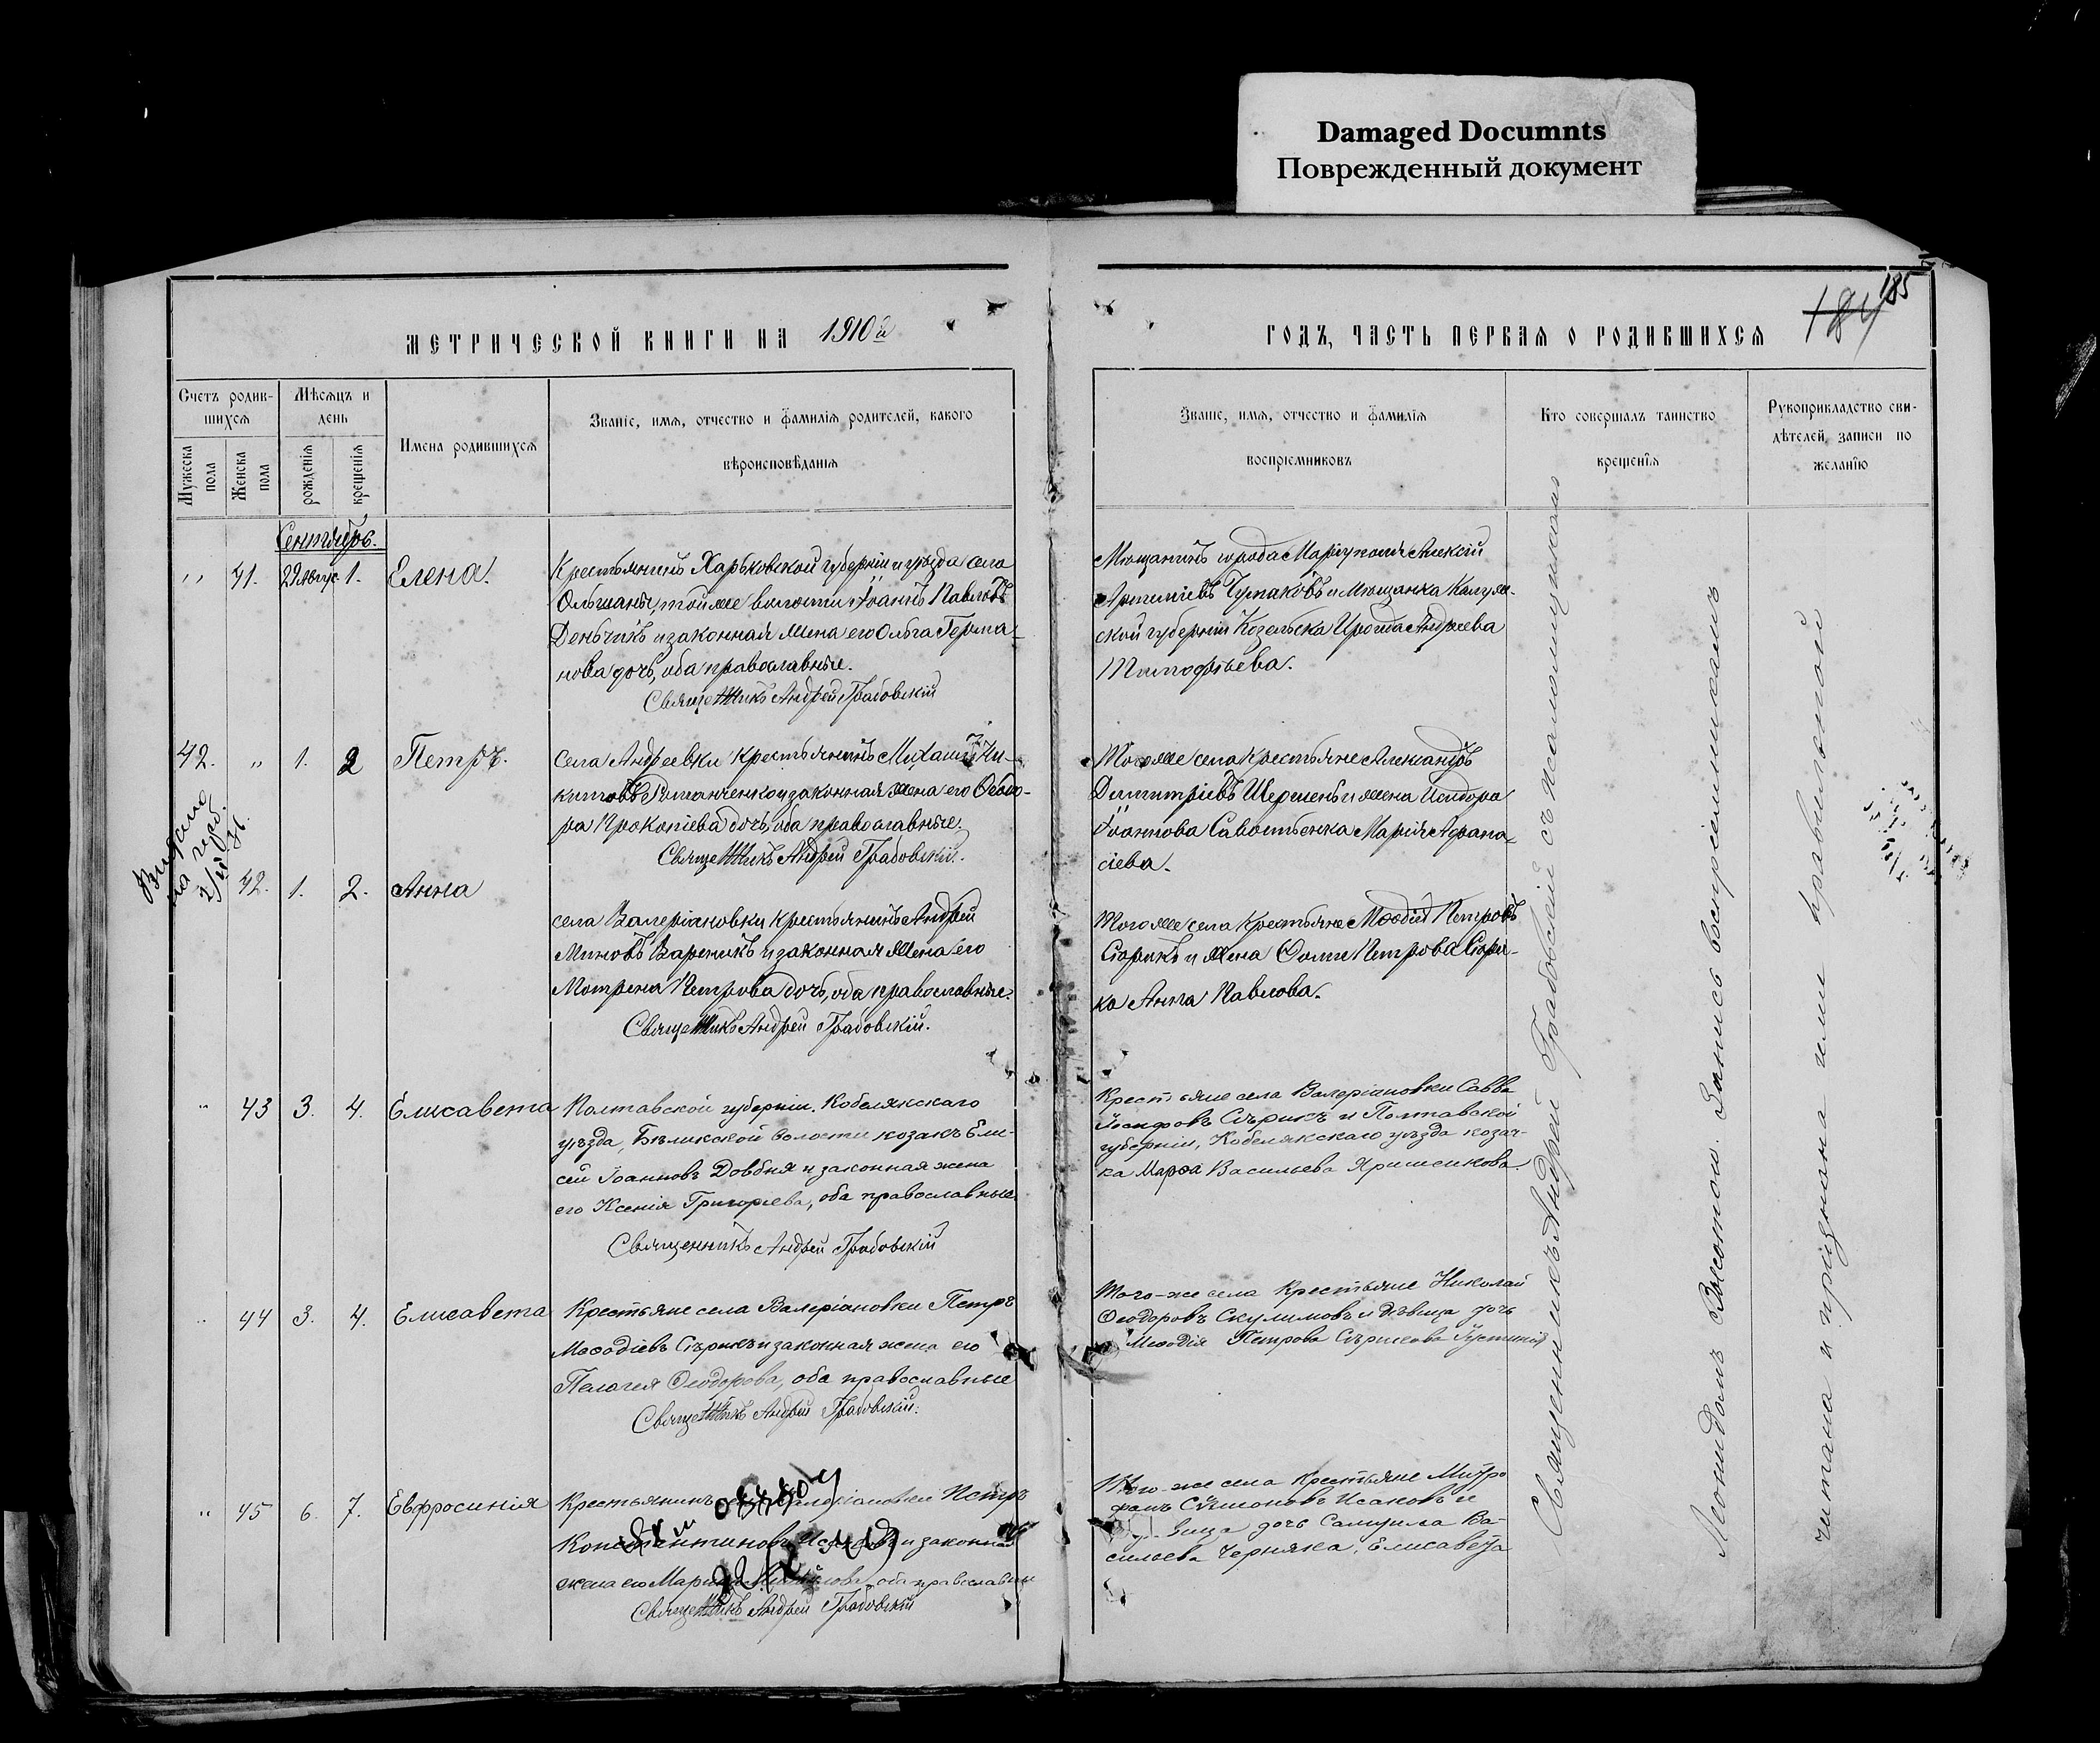 Damaged Documnts
Поврежденный документ
185
184
МЕТРИЧЕСКОЙ КНИГИ НА 1910й
ГОДЪ, ЧАСТЬ ПЕРВАЯ О РОДИВШИХСЯ
Счетъ родив-
шихся
Мужеска пола
Женска пола
Мѣсяцъ и
день
рожденія
крещенія
Имена родившихся
Званіе, имя, отчество и фамилія родителей, какого
вѣроисповѣданія
Званіе, имя, отчество и фамилія
воспріемниковъ
Кто совершалъ таинство
крещенія
Рукоприкладство сви-
дѣтелей записи по
желанію
Сентябрь.
" 41. 29 август. 1. Елена.
Крестьянинъ Харьковской губерніи и уѣзда села
Ольшаны, той же волости Іоаннъ Павловъ
Деньчикъ и законная жена его Ольга Герма-
нова дочь, оба православные.
Священникъ Андрей Грабовскій
Мѣщанинъ города Маріуполя Алексій
Артеміевъ Чумаковъ и мѣщанка Калуж-
ской губерніи Козельска Ироида Андреева
Тимофѣева.
42. " 1. 2 Петръ.
села Андреевки крестьянинъ Михаилъ Ни-
китовъ Романченко и законная жена его Ѳеодо-
ра Прокопіева дочь, оба православные.
Священникъ Андрей Грабовскій.
Того же села крестьяне Александръ
Димитріевъ Шершень и жена Исидора
Іоаннова Савостьенка Марія Аѳана-
сіева.
Видано
на
" 42. 1. 2. Анна
села Валеріановки крестьянинъ Андрей
Миновъ Вареникъ и законная жена его
Мотрена Петрова дочь, оба православные.
Священникъ Андрей Грабовскій.
Того же села крестьяне Меѳодій Петровъ
Сѣрикъ и жена Ѳомы Петрова Сѣри-
ка Анна Павлова.
" 43 3. 4. Елисавета
Полтавской губерніи, Кобелякскаго
уѣзда, Бѣликской волости козакъ Ели-
сей Іоанновъ Довбня и законная жена
его Ксенія Григорьева, оба православные.
Священникъ Андрей Грабовскій
Крестьяне села Валеріановки Савва
Іосифовъ Сѣрикъ и Полтавской
губерніи, Кобелякскаго уѣзда козач-
ка Марѳа Васильева Яришенкова.
" 44 3. 4. Елисавета
Крестьяне села Валеріановки Петръ
Меѳодіевъ Сѣрикъ и законная жена его
Пелагея Ѳеодорова, оба православные
Священникъ Андрей Грабовскій.
Того-же села крестьяне Николай
Ѳеодоровъ Скулимовъ и дѣвица дочь
Меѳодія Петрова Сѣрикова Іустинія
" 45 6. 7. Евфросинія
Крестьянинъ села Валеріановки Петръ
Константиновъ Исаковъ и законная
жена его Марія оба православные
Священникъ Андрей Грабовскій
Того-же села крестьяне Митро
фанъ Сѵмоновъ Исаковъ и
вица дочь Самуила Ва-
сильева Черняка, Елисавета
Священникъ Андрей Грабовскій съ псаломщикомъ
Леонидомъ Высотою. Запись воспріемниками
читана и признана ими правильной